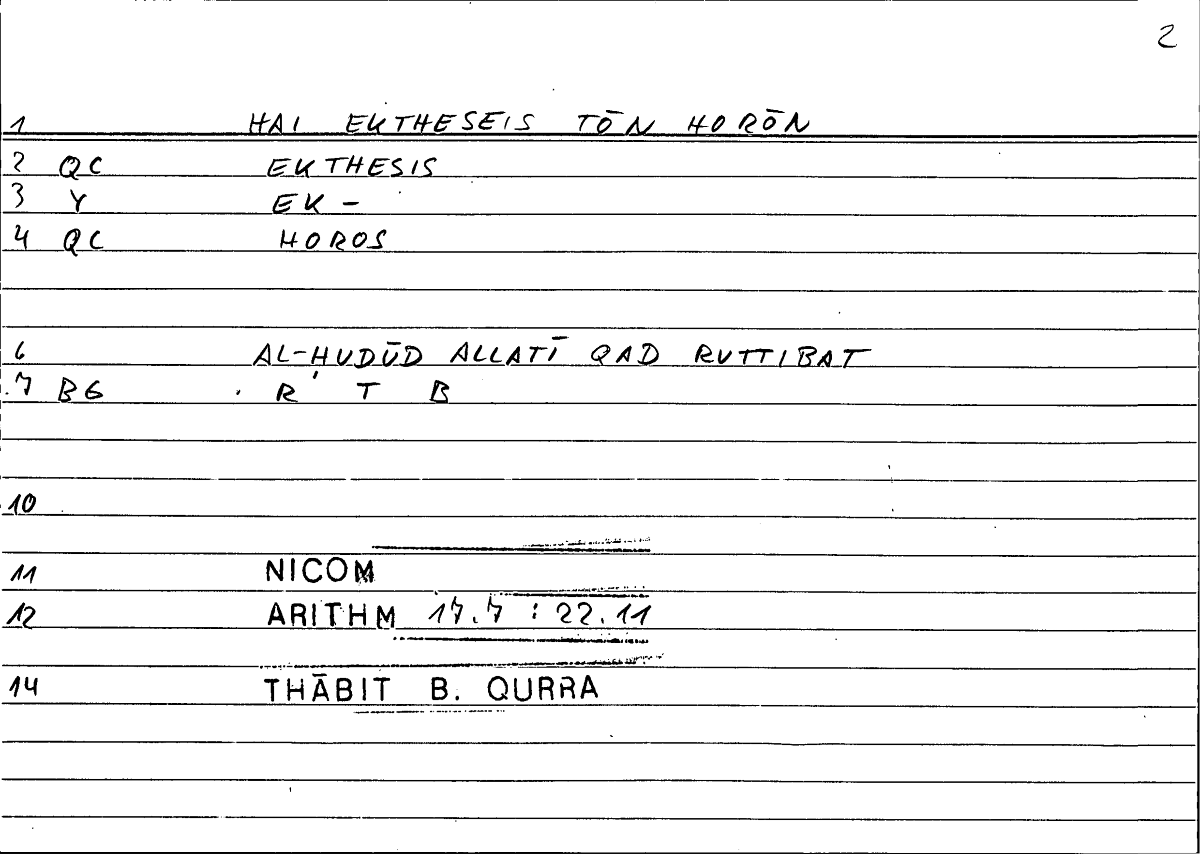 2
1 HAI EKTHESEIS TŌN HORŌN
2 QC EKTHESIS
3 Y EK -
4 QC HOROS
6 AL-HUDŪD ALLATĪ QAD RUTTIBAT
7 BG R T B
10
11 NICOM
12 ARITHM 17.7 : 22.11
14 THĀBIT B. QURRA